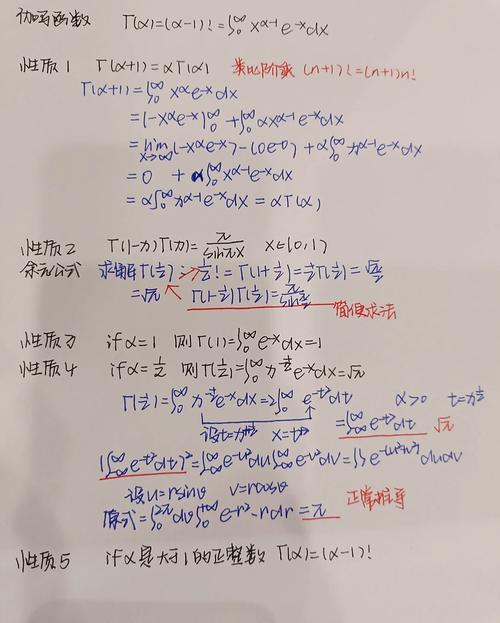 伽马函数 Γ(α)=(α-1)!=∫₀^∞ x^(α-1) e^(-x) dx
性质1 Γ(α+1)=αΓ(α) 类比阶乘 (n+1)!=(n+1)n!
Γ(α+1)=∫₀^∞ x^α e^(-x) dx
=(-x^α e^(-x))₀^∞ + ∫₀^∞ αx^(α-1) e^(-x) dx
=lim x→∞ (-x^α e^(-x))-(0e^0)+α∫₀^∞ x^(α-1) e^(-x) dx
=0 +α∫₀^∞ x^(α-1) e^(-x) dx
=α∫₀^∞ x^(α-1) e^(-x) dx=αΓ(α)
性质2 Γ(1-x)Γ(x)=π/sinπx x∈(0,1)
余元公式 求解Γ(1/2) : 1/2!=Γ(1+1/2)=1/2Γ(1/2)=√π/2
=√π Γ(1-1/2)Γ(1/2)=π/sinπ/2
简便求法
性质3 if α=1 则Γ(1)=∫₀^∞ e^(-x) dx=1
性质4 if α=1/2 则Γ(1/2)=∫₀^∞ x^(-1/2) e^(-x) dx=√π
Γ(1/2)=∫₀^∞ x^(-1/2) e^(-x) dx=2∫₀^∞ e^(-t²) dt α>0 t=x^(1/2)
设t=x^(1/2) x=t² =∫_(-∞)^∞ e^(-t²) dt √π
(∫_(-∞)^∞ e^(-t²) dt)²=∫_(-∞)^∞ e^(-u²) du∫_(-∞)^∞ e^(-v²) dv=∫∫e^(-(u²+v²)) dudv
设u=rsinθ v=rcosθ 正常推导
原式=∫₀^(2π) dθ∫₀^(+∞) e^(-r²)·rdr=π
性质5 if α是大于1的正整数 Γ(α)=(α-1)!